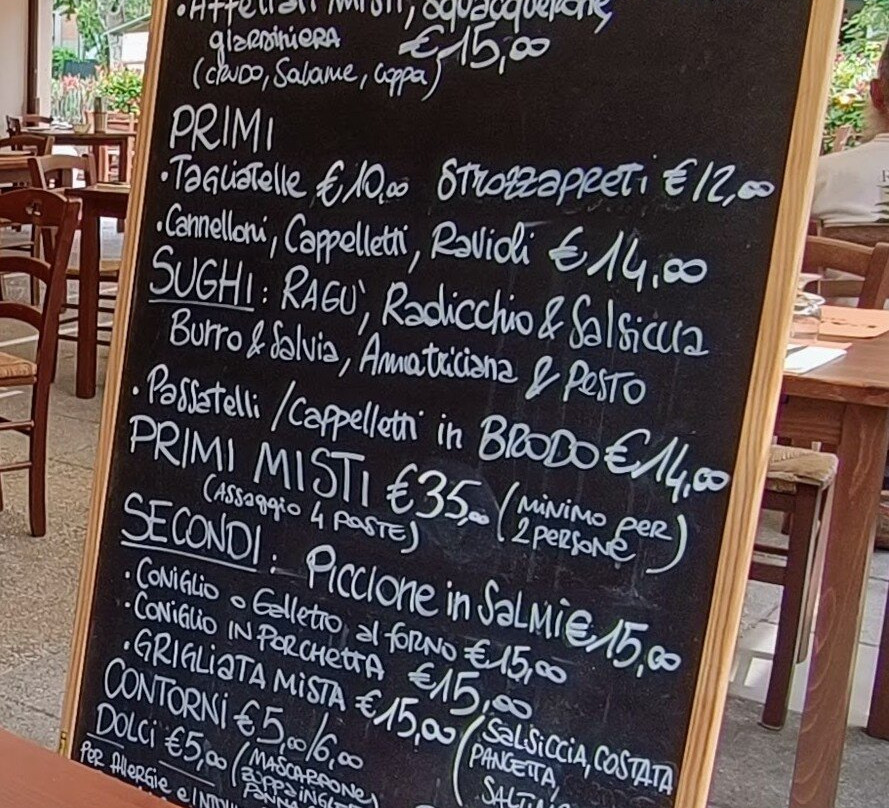 • Affettati misti, squacquerone,
giardiniera €15,00
(crudo, Salame, coppa)
PRIMI
• Tagliatelle €10,00 Strozzapreti €12,00
• Cannelloni, Cappelletti, Ravioli €14,00
SUGHI: RAGU', Radicchio & Salsiccia
Burro & Salvia, Amatriciana & Pesto
• Passatelli / Cappelletti in BRODO €14,00
PRIMI MISTI €35,00 (MINIMO per
(Assaggio 4 PASTE) 2 PERSONE)
SECONDI: Piccione in SALMI €15,00
• Coniglio o Galletto al forno €15,00
• Coniglio in PORCHETTA €15,00
• GRIGLIATA MISTA €15,00 (SALSICCIA, COSTATA
PANCETTA,
CONTORNI €5,00/6,00
DOLCI €5,00 (MASCARPONE
Per Allergie e